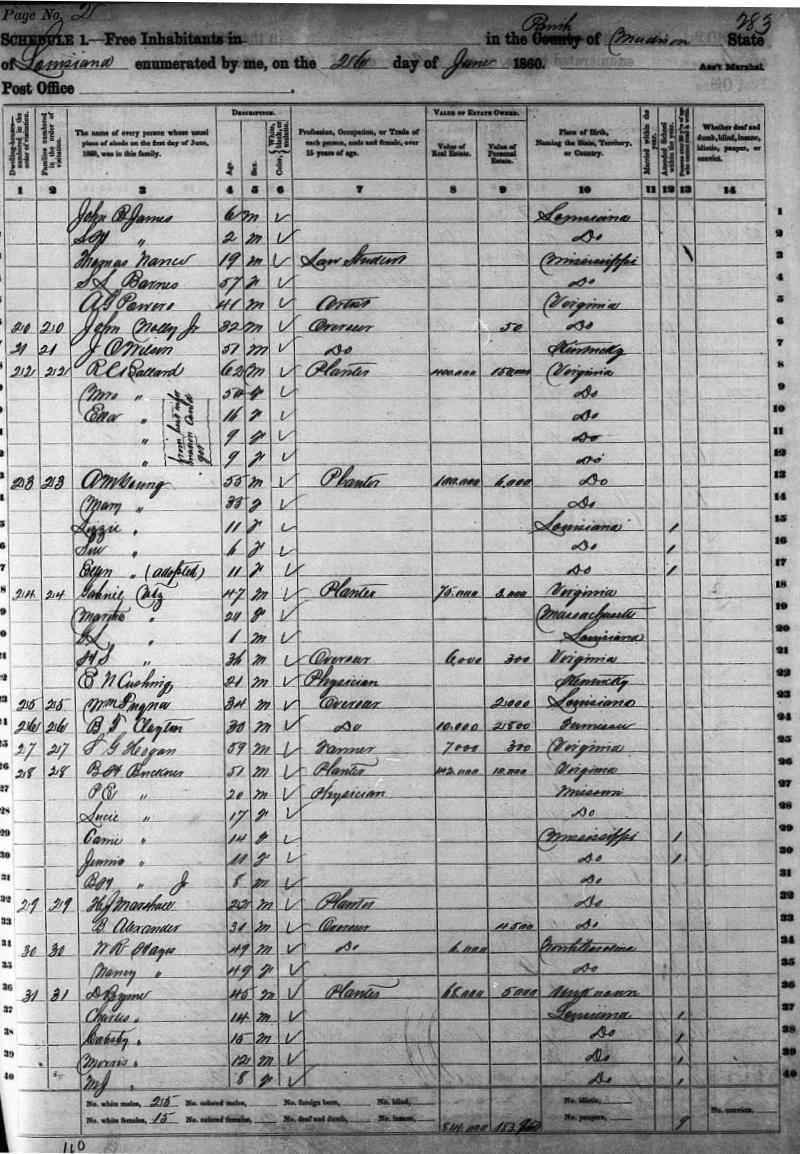 Page No. 2
283
SCHEDULE 1.—Free Inhabitants in in the County Parish of Madison State
of Louisiana enumerated by me, on the 26 day of June 1860. Ass't Marshal
Post Office
Dwelling-houses—numbered in the order of visitation.
Families numbered in the order of visitation.
The name of every person whose usual place of abode on the first day of June, 1860, was in this family.
DESCRIPTION.
Age.
Sex.
Color, White, black, or mulatto.
Profession, Occupation, or Trade of each person, male and female, over 15 years of age.
VALUE OF ESTATE OWNED.
Value of Real Estate.
Value of Personal Estate.
Place of Birth, Naming the State, Territory, or Country.
Married within the year.
Attended School within the year.
Whether deaf and dumb, blind, insane, idiotic, pauper, or convict.
1 2 3 4 5 6 7 8 9 10 11 12 13 14
John B James 6 m ✓ Louisiana 1
" 2 m ✓ Do 2
Thomas Nance 19 m ✓ Law Student Mississippi 3
S L Barnes 57 f ✓ Do 4
A G Powers 41 m ✓ Artist Virginia 5
210 210 John Jr 32 m ✓ Overseer 50 Do 6
21 21 J C Wilson 51 m ✓ Do Kentucky 7
212 212 R C Ballard 62 m ✓ Planter 400.000 150.000 Virginia 8
Mrs " 54 f ✓ Do 9
Ella " 16 f ✓ Do 10
" 9 f ✓ Do 11
" 9 f ✓ Do 12
from best info
got
213 213 A M Young 55 m ✓ Planter 100.000 6,000 Do 13
Mary " 33 f ✓ Do 14
Lizzie " 11 f ✓ Louisiana 1 15
Sue " 6 f ✓ Do 1 16
Ellen " (adopted) 11 f ✓ Do 1 17
214 214 Gabriel Utz 47 m ✓ Planter 75.000 3.000 Virginia 18
Martha " 24 f ✓ Massachusetts 19
" 1 m ✓ Louisiana 20
H S " 36 m ✓ Overseer 6,000 300 Virginia 21
E N Cushing 21 m ✓ Physician Kentucky 22
215 215 Wm 34 m ✓ Overseer 2000 Louisiana 23
216 216 B F Clayton 30 m ✓ Do 10.000 2800 Tennessee 24
217 217 S G Hogan 59 m ✓ Farmer 7000 300 Virginia 25
218 218 B H Buckner 51 m ✓ Planter 142.000 10.000 Virginia 26
P E " 20 m ✓ Physician Missouri 27
Lucie " 17 f ✓ Do 28
Carrie " 14 f ✓ Mississippi 1 29
Jennie " 11 f ✓ Do 1 30
B H " Jr 8 m ✓ Do 31
219 219 H J Marshall 22 m ✓ Planter Do 32
B Alexander 30 m ✓ Overseer 4500 Do 33
30 30 W R Hayes 49 m ✓ Do 6.000 North Carolina 34
Nancy " 49 f ✓ Do 35
31 31 D Byrne 45 m ✓ Planter 68.000 5000 Unknown 36
Charles " 14 m ✓ Louisiana 1 37
" 15 m ✓ Do 1 38
Morris " 12 m ✓ Do 1 39
M J " 8 f ✓ Do 1 40
No. white males, 25 No. colored males, No. foreign born, No. blind, No. idiotic,
No. white females, 15 No. colored females, No. deaf and dumb, No. insane, No. paupers, 9 No. convicts,
110